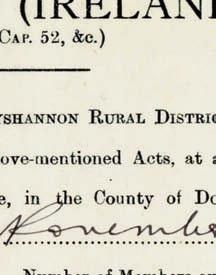 (IRELAND
CAP. 52, &c.)
YSHANNON RURAL DISTRIC
ove-mentioned Acts, at a
e, in the County of Do
November
Number of Members